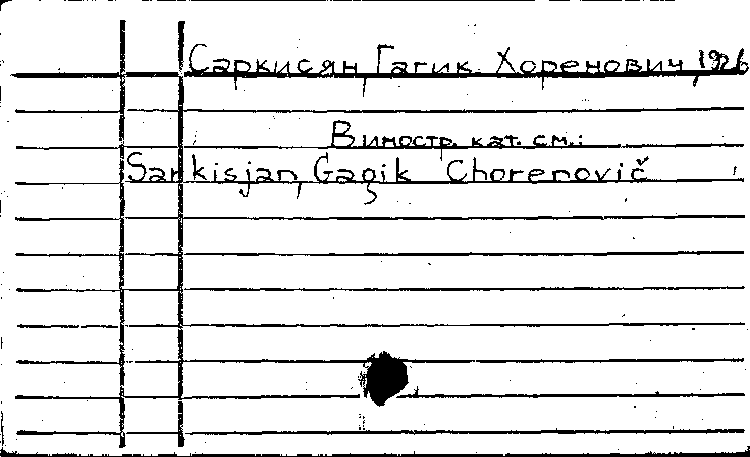 Саркисян, Гагик Хоренович, 1926
В иностр. кат. см.:
Sarkisjan, Gagik Chorenovič